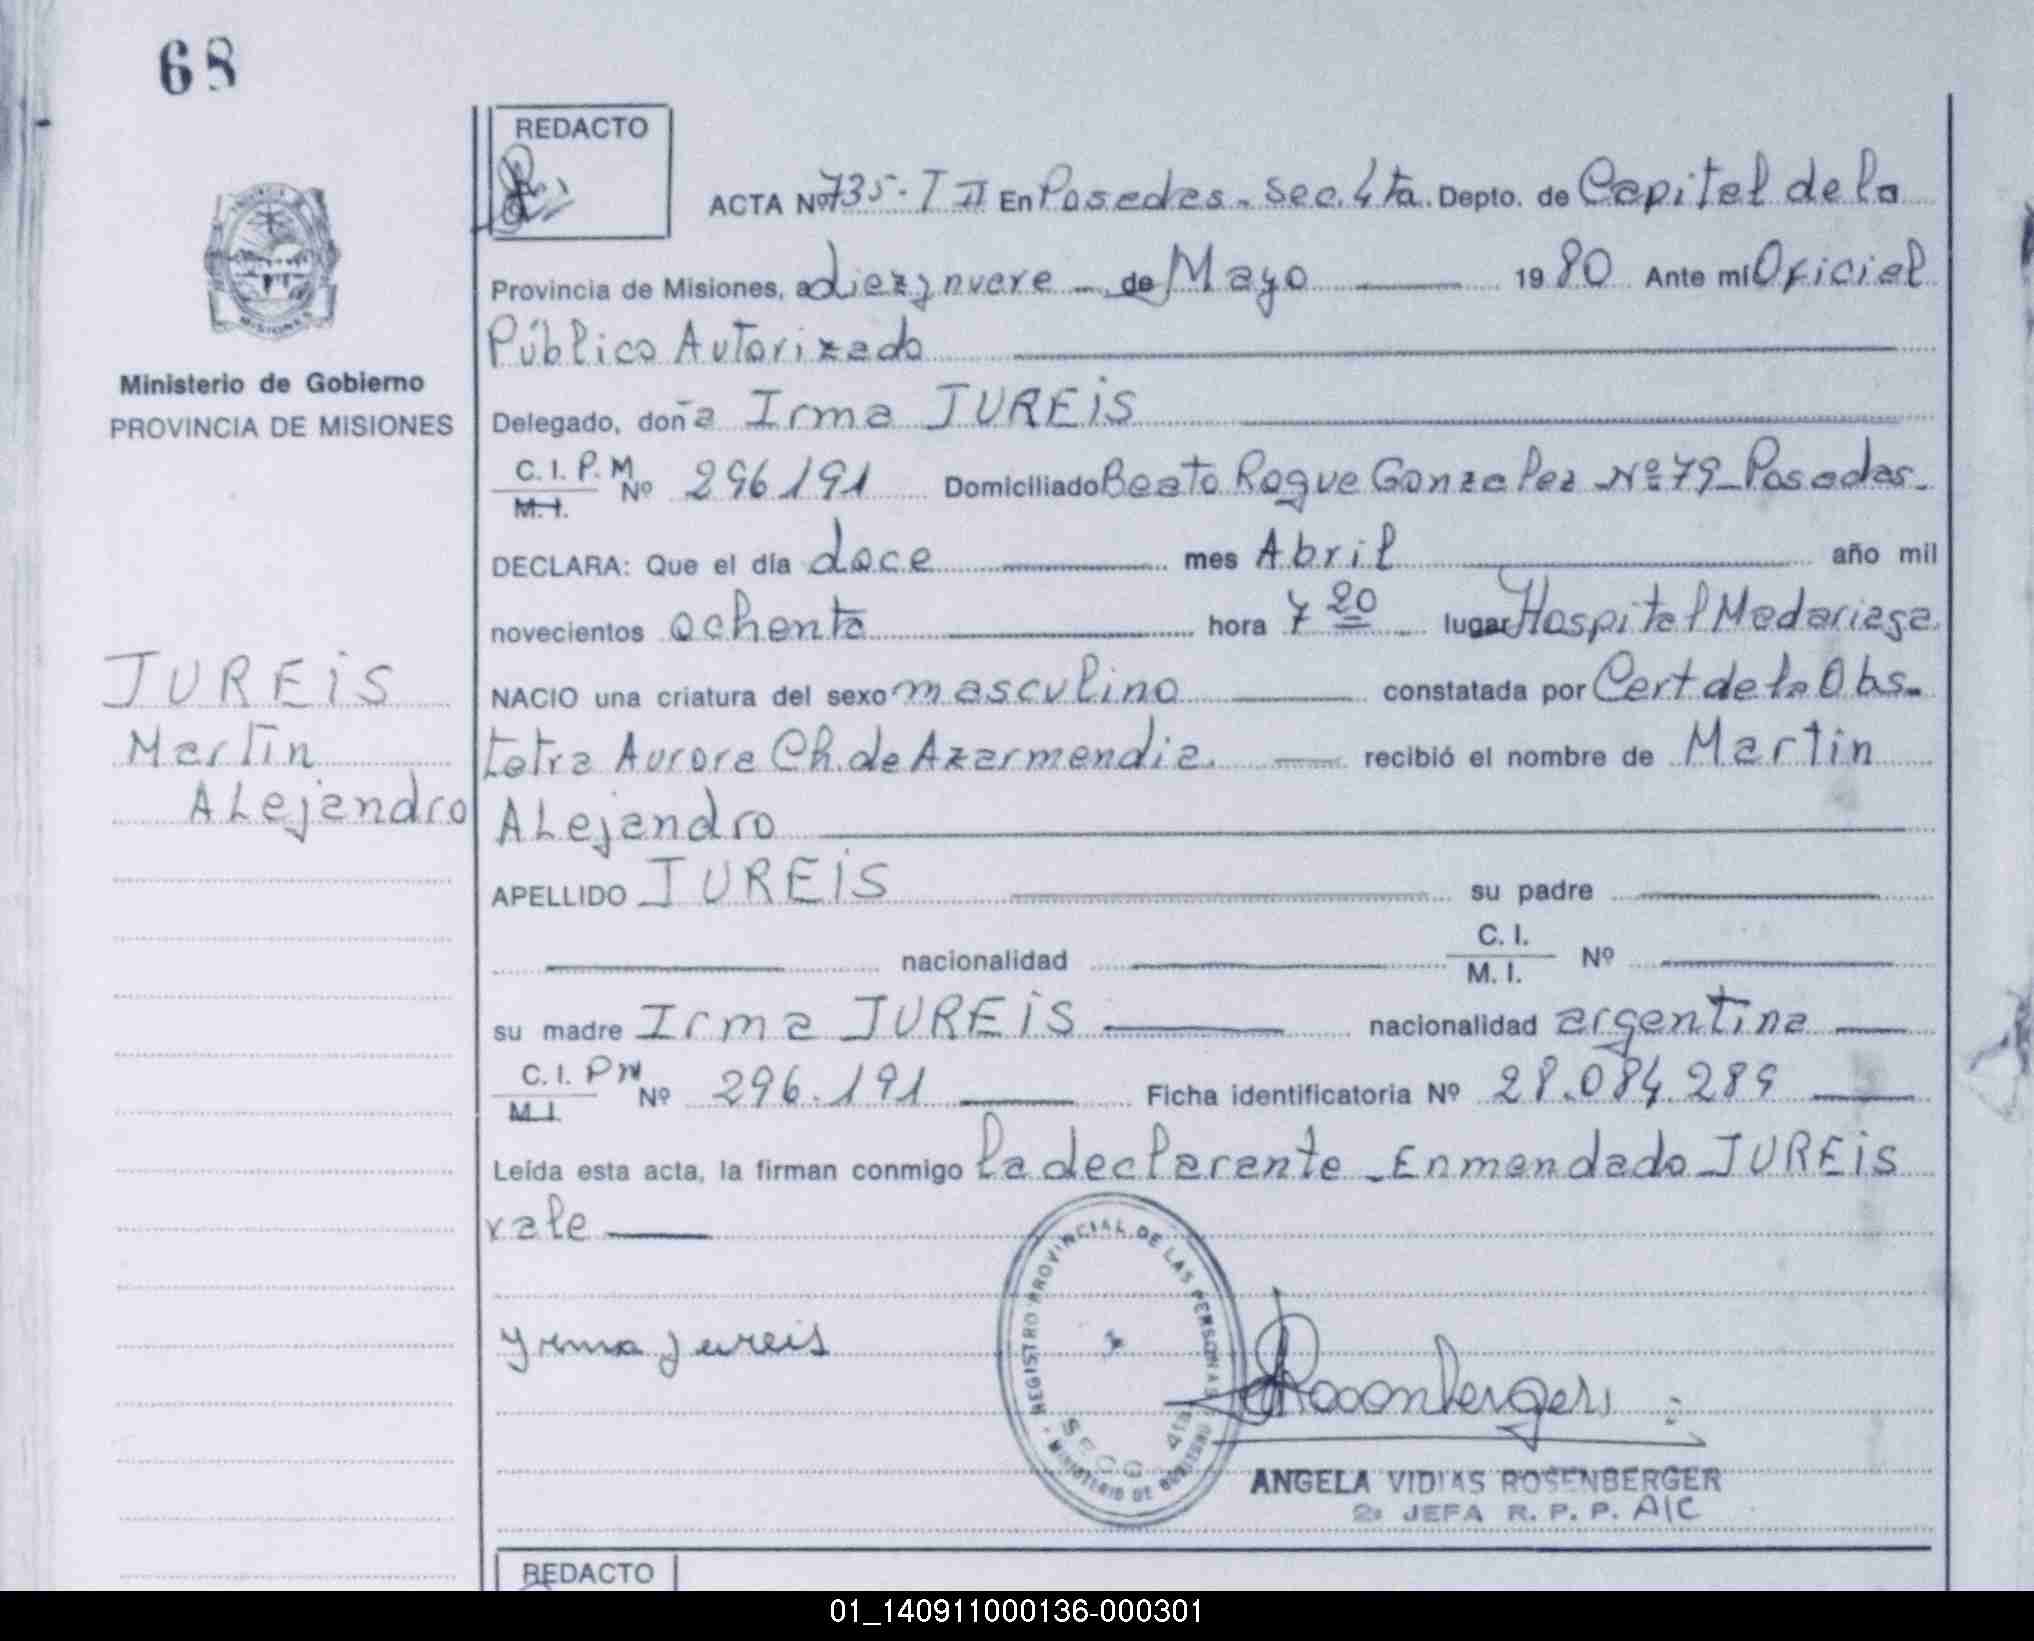 68
REDACTO
ACTA Nº 735-T II En Posadas. Sec. 4ta. Depto. de Capital de la
Provincia de Misiones, a diez y nueve de Mayo 1980 Ante mí Oficial
Público Autorizado
Ministerio de Gobierno
PROVINCIA DE MISIONES
Delegado, doña Irma JUREIS
C. I. P. M. Nº 296191 Domiciliado Beato Roque Gonzalez Nº 79 - Posadas.
M. I.
DECLARA: Que el día doce mes Abril año mil
novecientos ochenta hora 7 20 lugar Hospital Madariaga
NACIO una criatura del sexo masculino constatada por Cert de la Obs-
tetra Aurora Ch. de Azarmendia. recibió el nombre de Martin
Alejandro
JUREIS
Martín
Alejandro
APELLIDO JUREIS su padre
nacionalidad C. I. Nº
M. I.
su madre Irma JUREIS nacionalidad argentina
C. I. P M Nº 296.191 Ficha identificatoria Nº 28.084.289
M. I.
Leída esta acta, la firman conmigo la declarante - Enmendado JUREIS
vale
Yrma Jureis
REGISTRO PROVINCIAL DE LAS PERSONAS
SECC 4ta
MINISTERIO DE GOBIERNO
Rosenberger
ANGELA VIDIAS ROSENBERGER
2a JEFA R. P. P. A/C
REDACTO
01_140911000136-000301